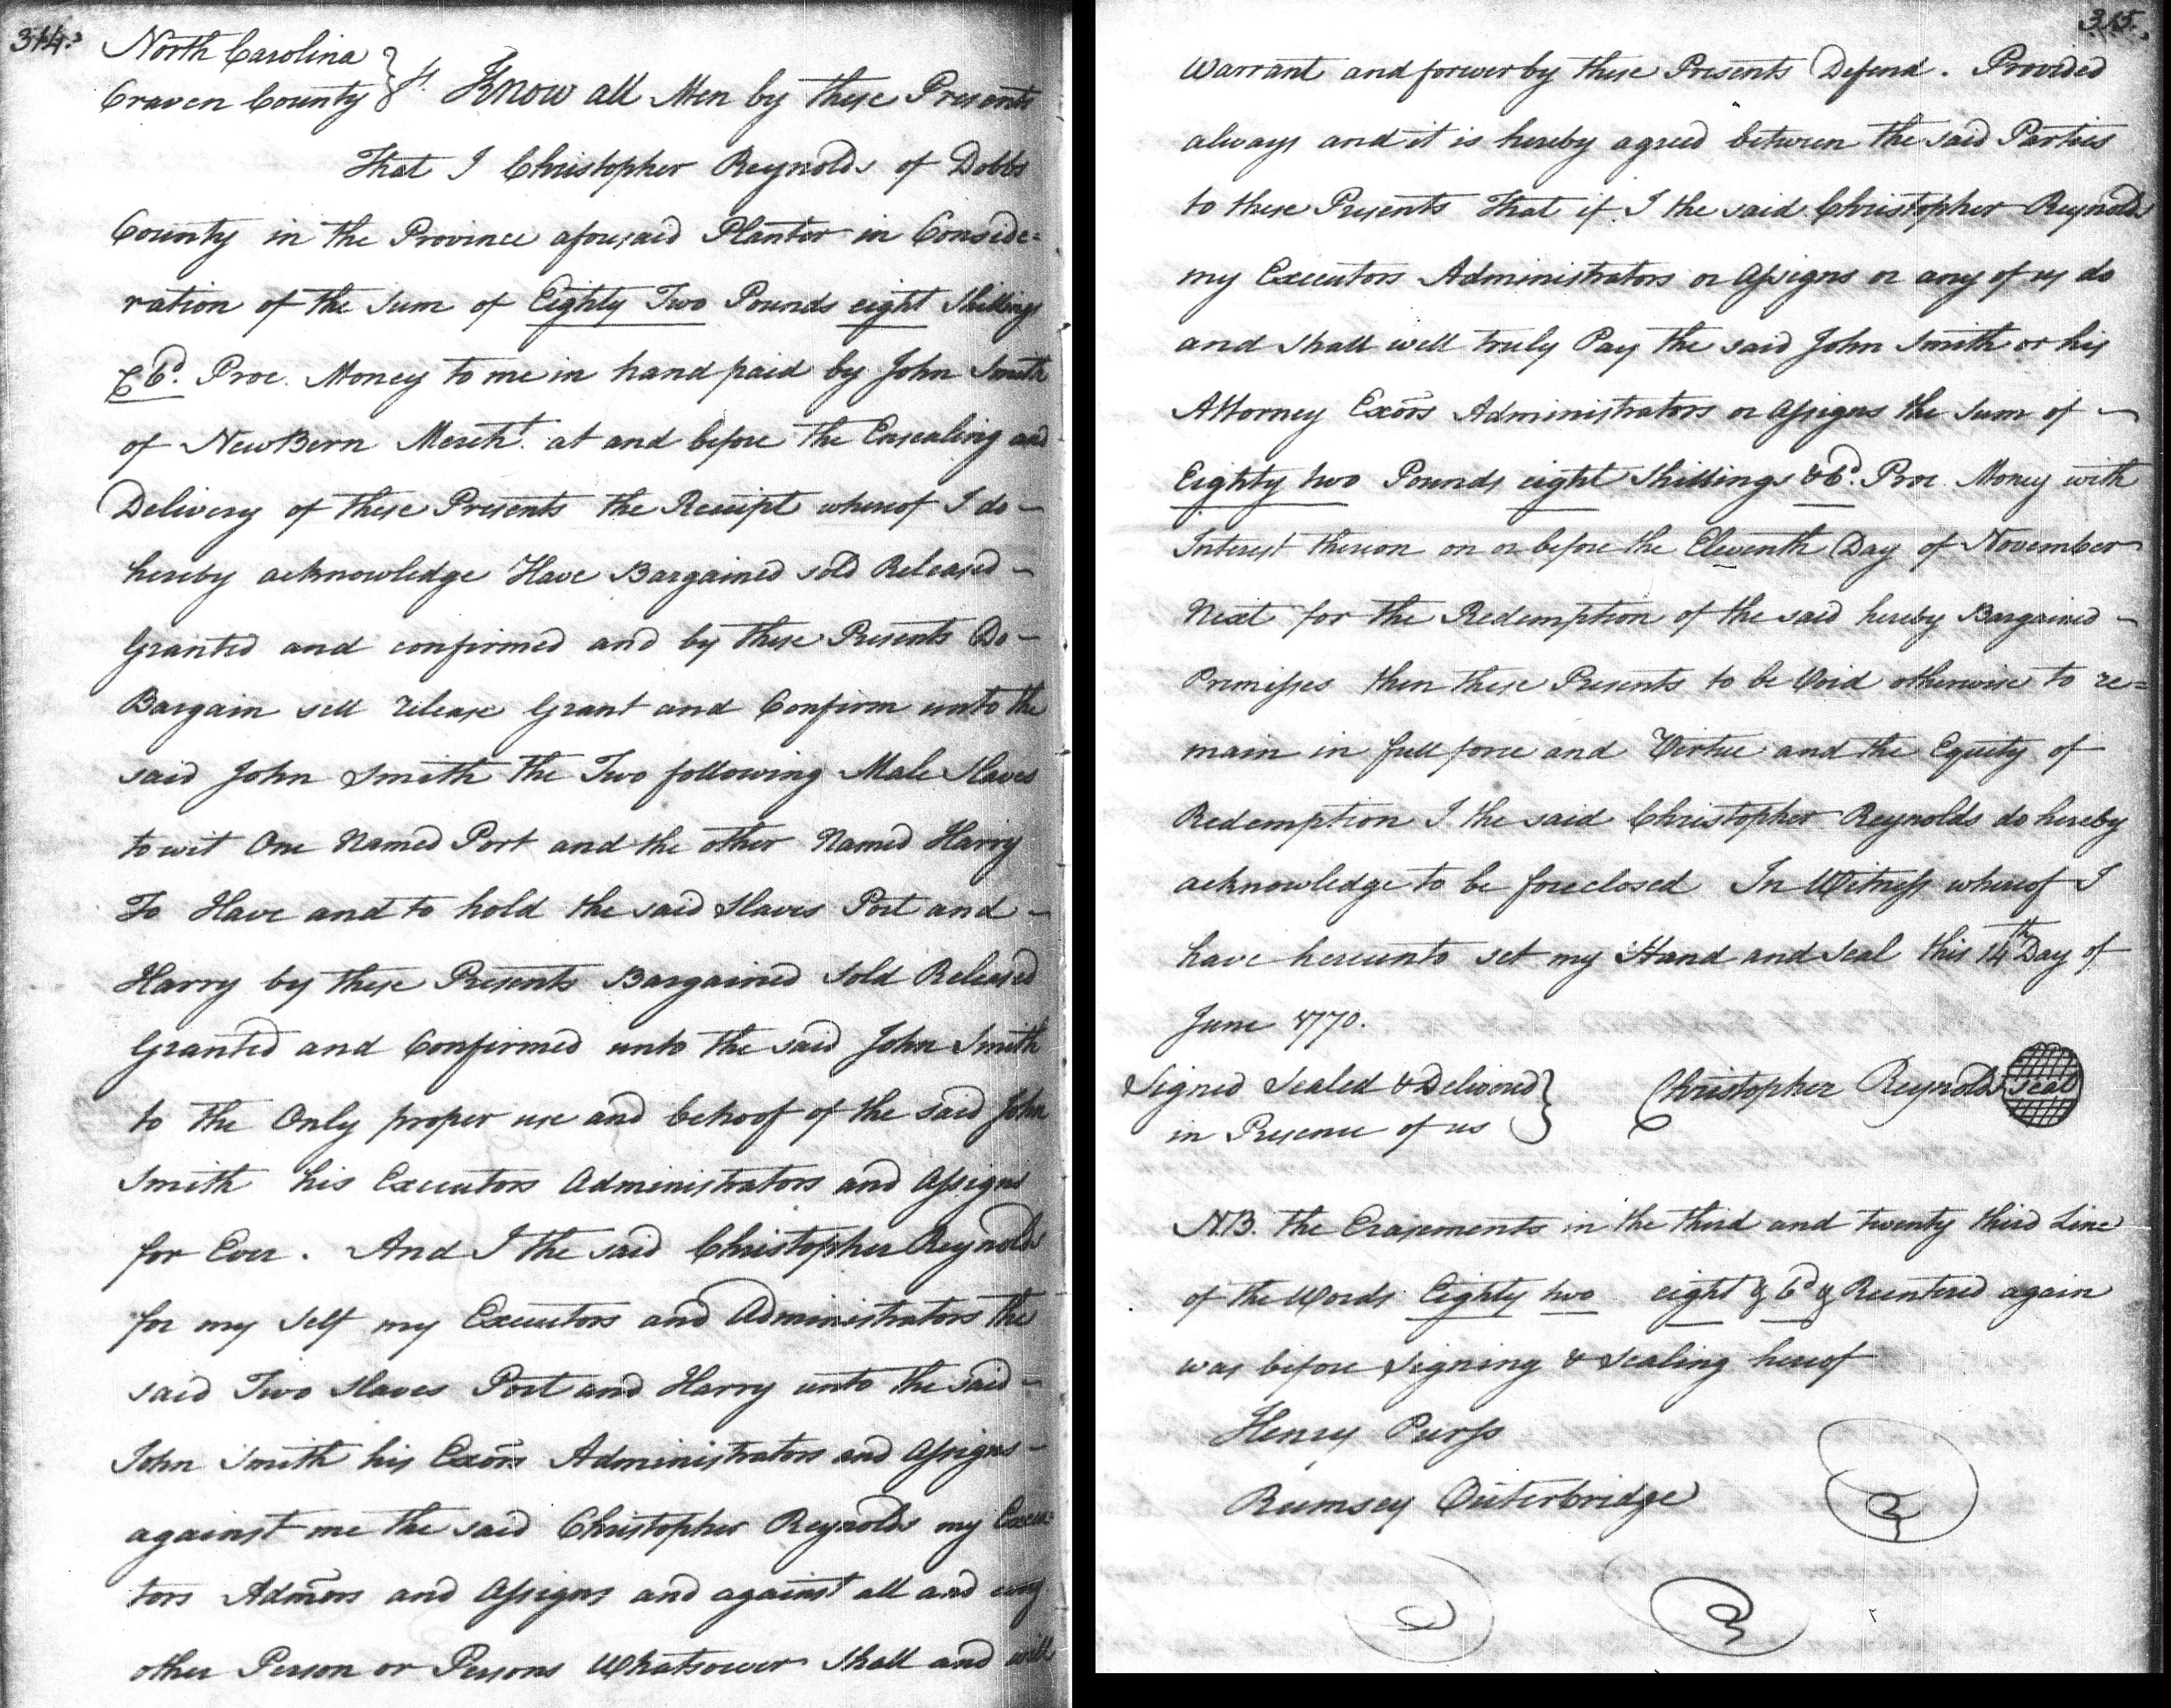 314.
North Carolina
Craven County } ss. Know all Men by these Presents
That I Christopher Reynolds of Dobbs
County in the Province aforesaid Planter in Conside=
ration of the Sum of Eighty Two Pounds eight Shillings
& 6d. Proc. Money to me in hand paid by John Smith
of NewBern Mercht. at and before the Ensealing and
Delivery of these Presents the Receipt whereof I do –
hereby acknowledge Have Bargained sold Released –
Granted and confirmed and by these Presents Do –
Bargain sell release Grant and Confirm unto the
said John Smith the Two following Male Slaves
to wit One Named Port and the other Named Harry
To Have and to hold the said Slaves Port and –
Harry by these Presents Bargained Sold Released
Granted and Confirmed unto the said John Smith
to the Only proper use and behoof of the said John
Smith his Executors Administrators and Assigns
for Ever. And I the said Christopher Reynolds
for my self my Executors and Administrators the
said Two Slaves Port and Harry unto the said –
John Smith his Exōrs Administrators and Assigns –
against me the said Christopher Reynolds my Execu=
tors Admōrs and Assigns and against all and every
other Person or Persons Whatsoever Shall and will
315.
Warrant and forever by these Presents Defend. Provided
always and it is hereby agreed between the said Parties
to these Presents that if I the said Christopher Reynolds
my Executors Administrators or Assigns or any of us do
and shall well truly Pay the said John Smith or his
Attorney Exōrs Administrators or Assigns the Sum of –
Eighty two Pounds eight Shillings & 6d. Proc. Money with
Interest thereon on or before the Eleventh Day of November
Next for the Redemption of the said hereby Bargained –
Premisses then these Presents to be Void otherwise to re=
main in full force and Virtue and the Equity of
Redemption I the said Christopher Reynolds do hereby
acknowledge to be foreclosed In Witness whereof I
have hereunto set my Hand and Seal this 14th Day of
June 1770.
Signed Sealed & Delivered } Christopher Reynolds seal
in Presence of us
N.B. the Erasements in the third and twenty third Line
of the Words Eighty two eight & 6d & Reentered again
was before Signing & Sealing hereof
Henry Purss
Rumsey Outerbridge